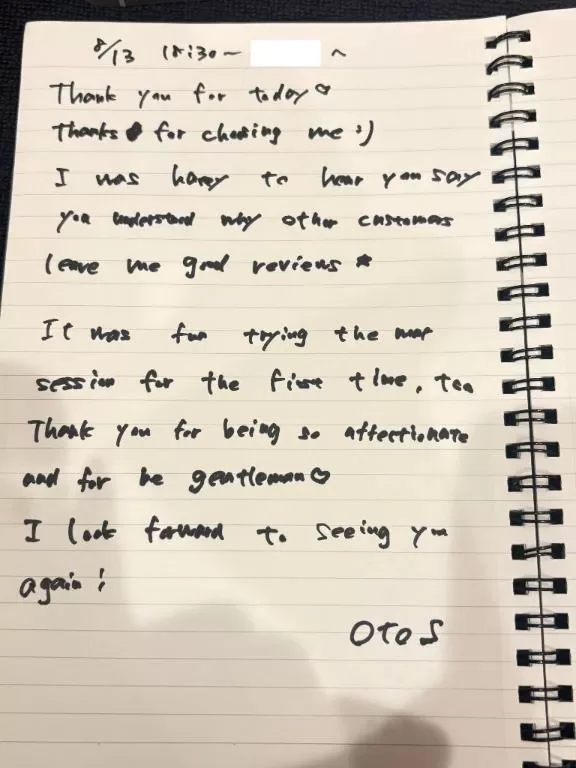 8/13 18:30~ ~
Thank you for today♡
Thanks for choosing me :)
I was happy to hear you say
you understand why other customers
leave me good reviews *
It was fun trying the mat
session for the first time, too
Thank you for being so affectionate
and for be gentleman♡
I look forward to seeing you
again!